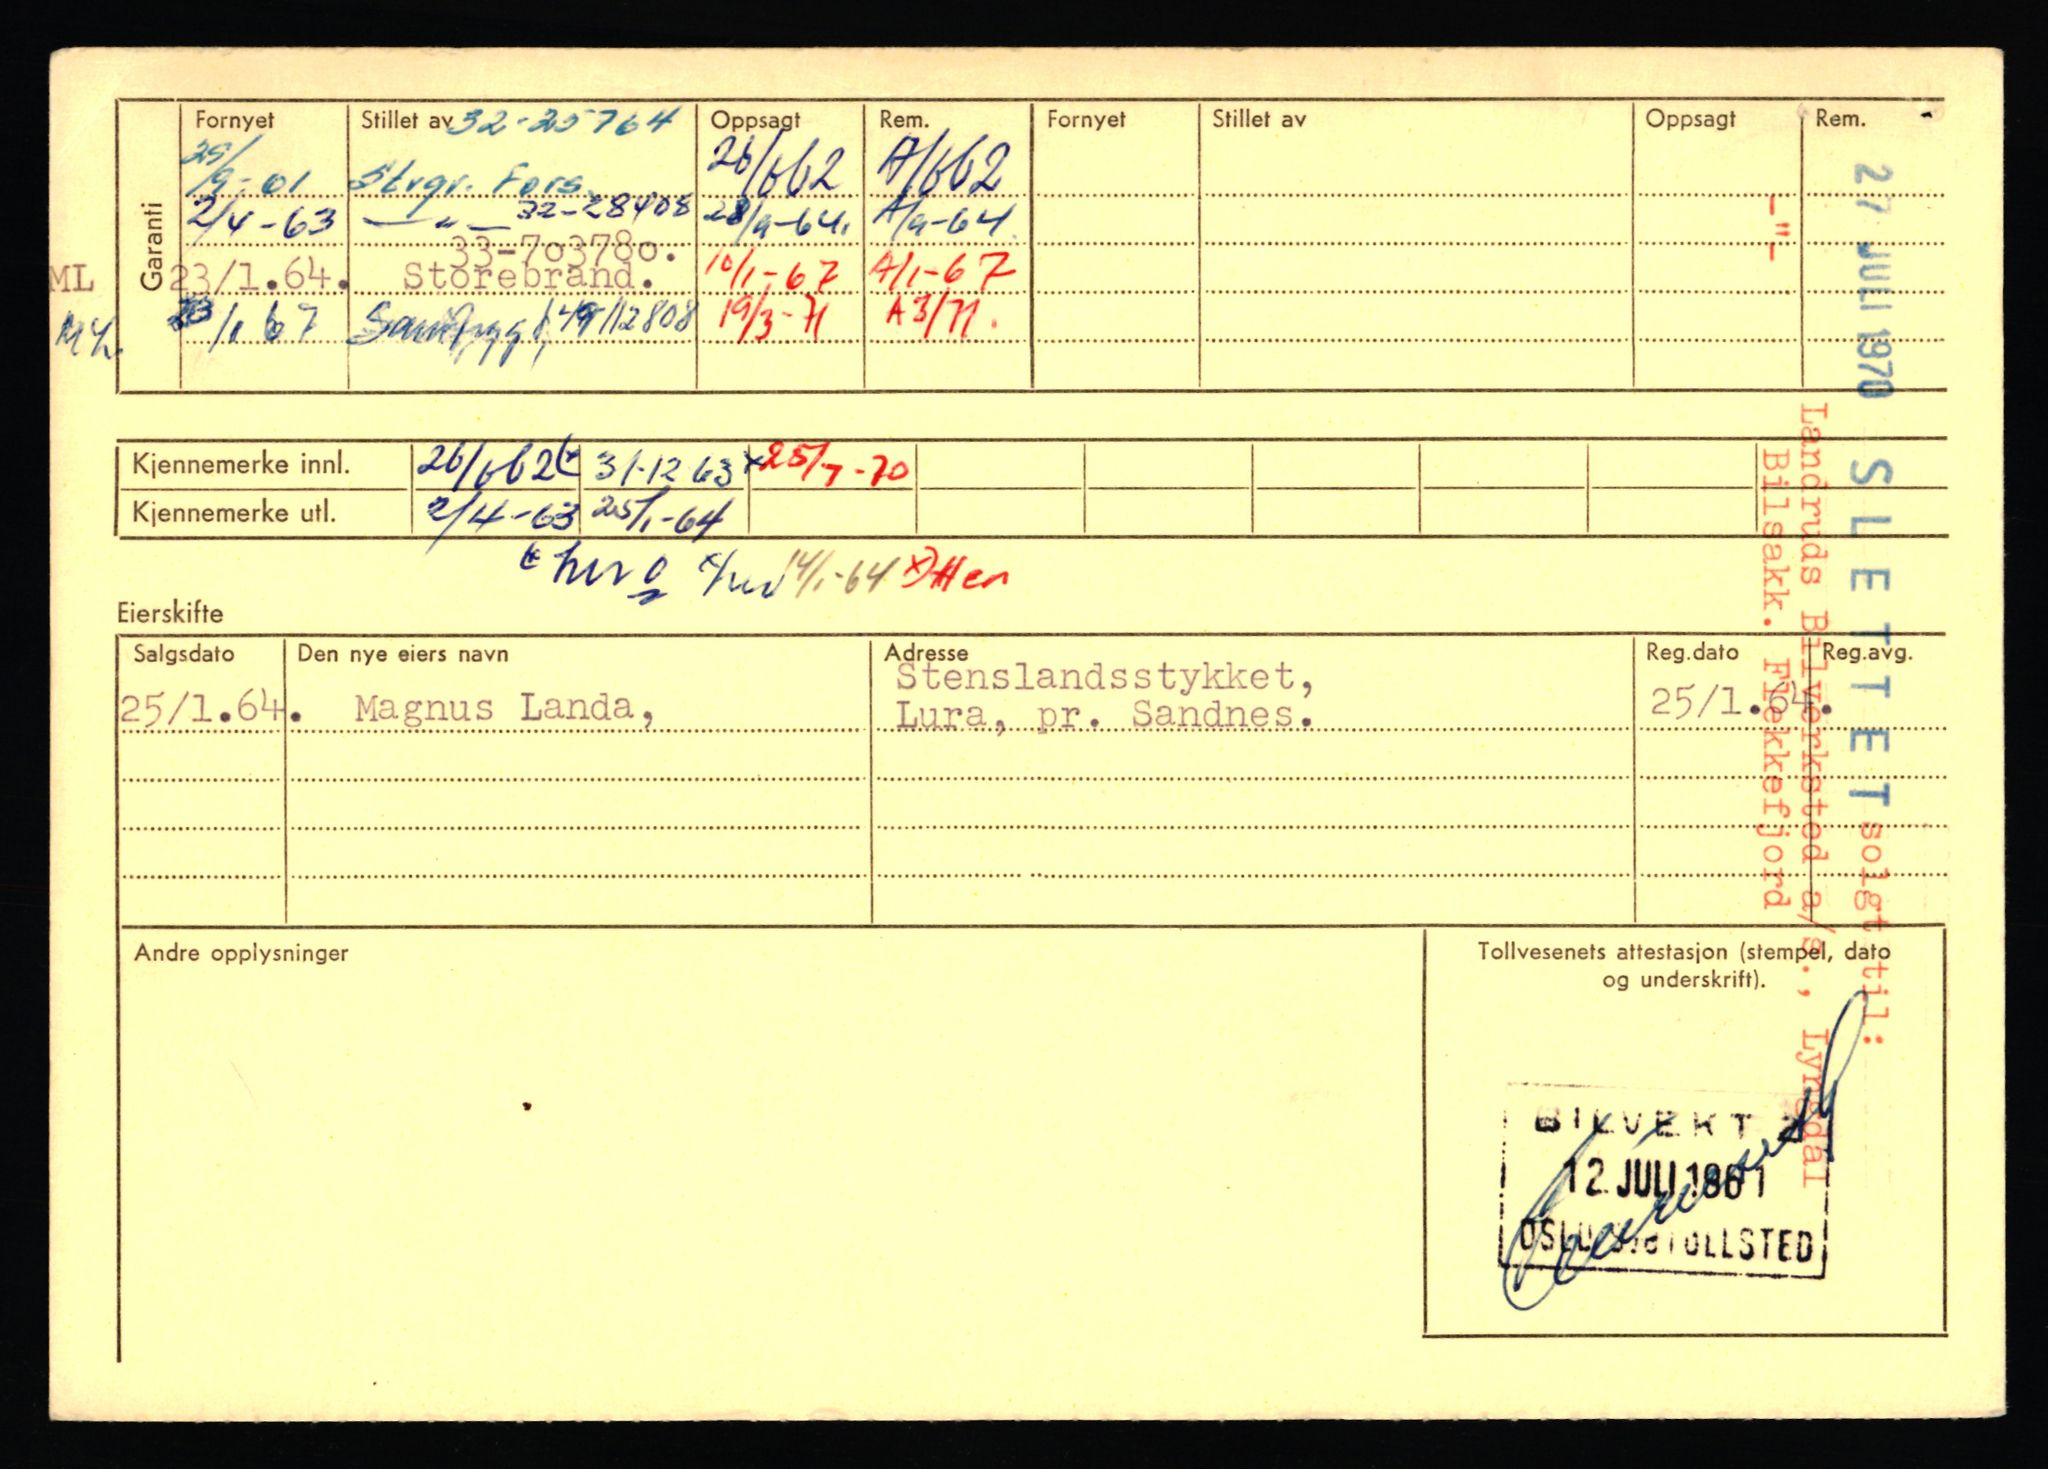 Garanti
Fornyet Stillet av 32-25764 Oppsagt Rem. Fornyet Stillet av Oppsagt Rem.
29/9-61 Strgr. Fors. 26/6 62 A/6 62
2/4-63 —"— 32-28408 28/9-64. A/9-64
33-703780.
ML 23/1.64. Storebrand. 10/1-67 A/1-67
ML. 23/1 67 49/12808 19/3-71 A3/71.
Kjennemerke innl. 26/6 62 31-12 63 x 25/7-70
Kjennemerke utl. 2/4-63 25/1-64
14/1-64
Eierskifte
Salgsdato Den nye eiers navn Adresse Reg.dato Reg.avg.
Stenslandsstykket,
25/1.64. Magnus Landa, Lura, pr. Sandnes. 25/1.64.
Andre opplysninger
Tollvesenets attestasjon (stempel, dato
og underskrift).
BILVEKT 2
12 JULI 1961
OSLO TOLLSTED
27 JULI 1970 SLETTET solgt til:
Landruds Bilverksted a/s., Lyngdal
-"- Bilsakk. Flekkefjord